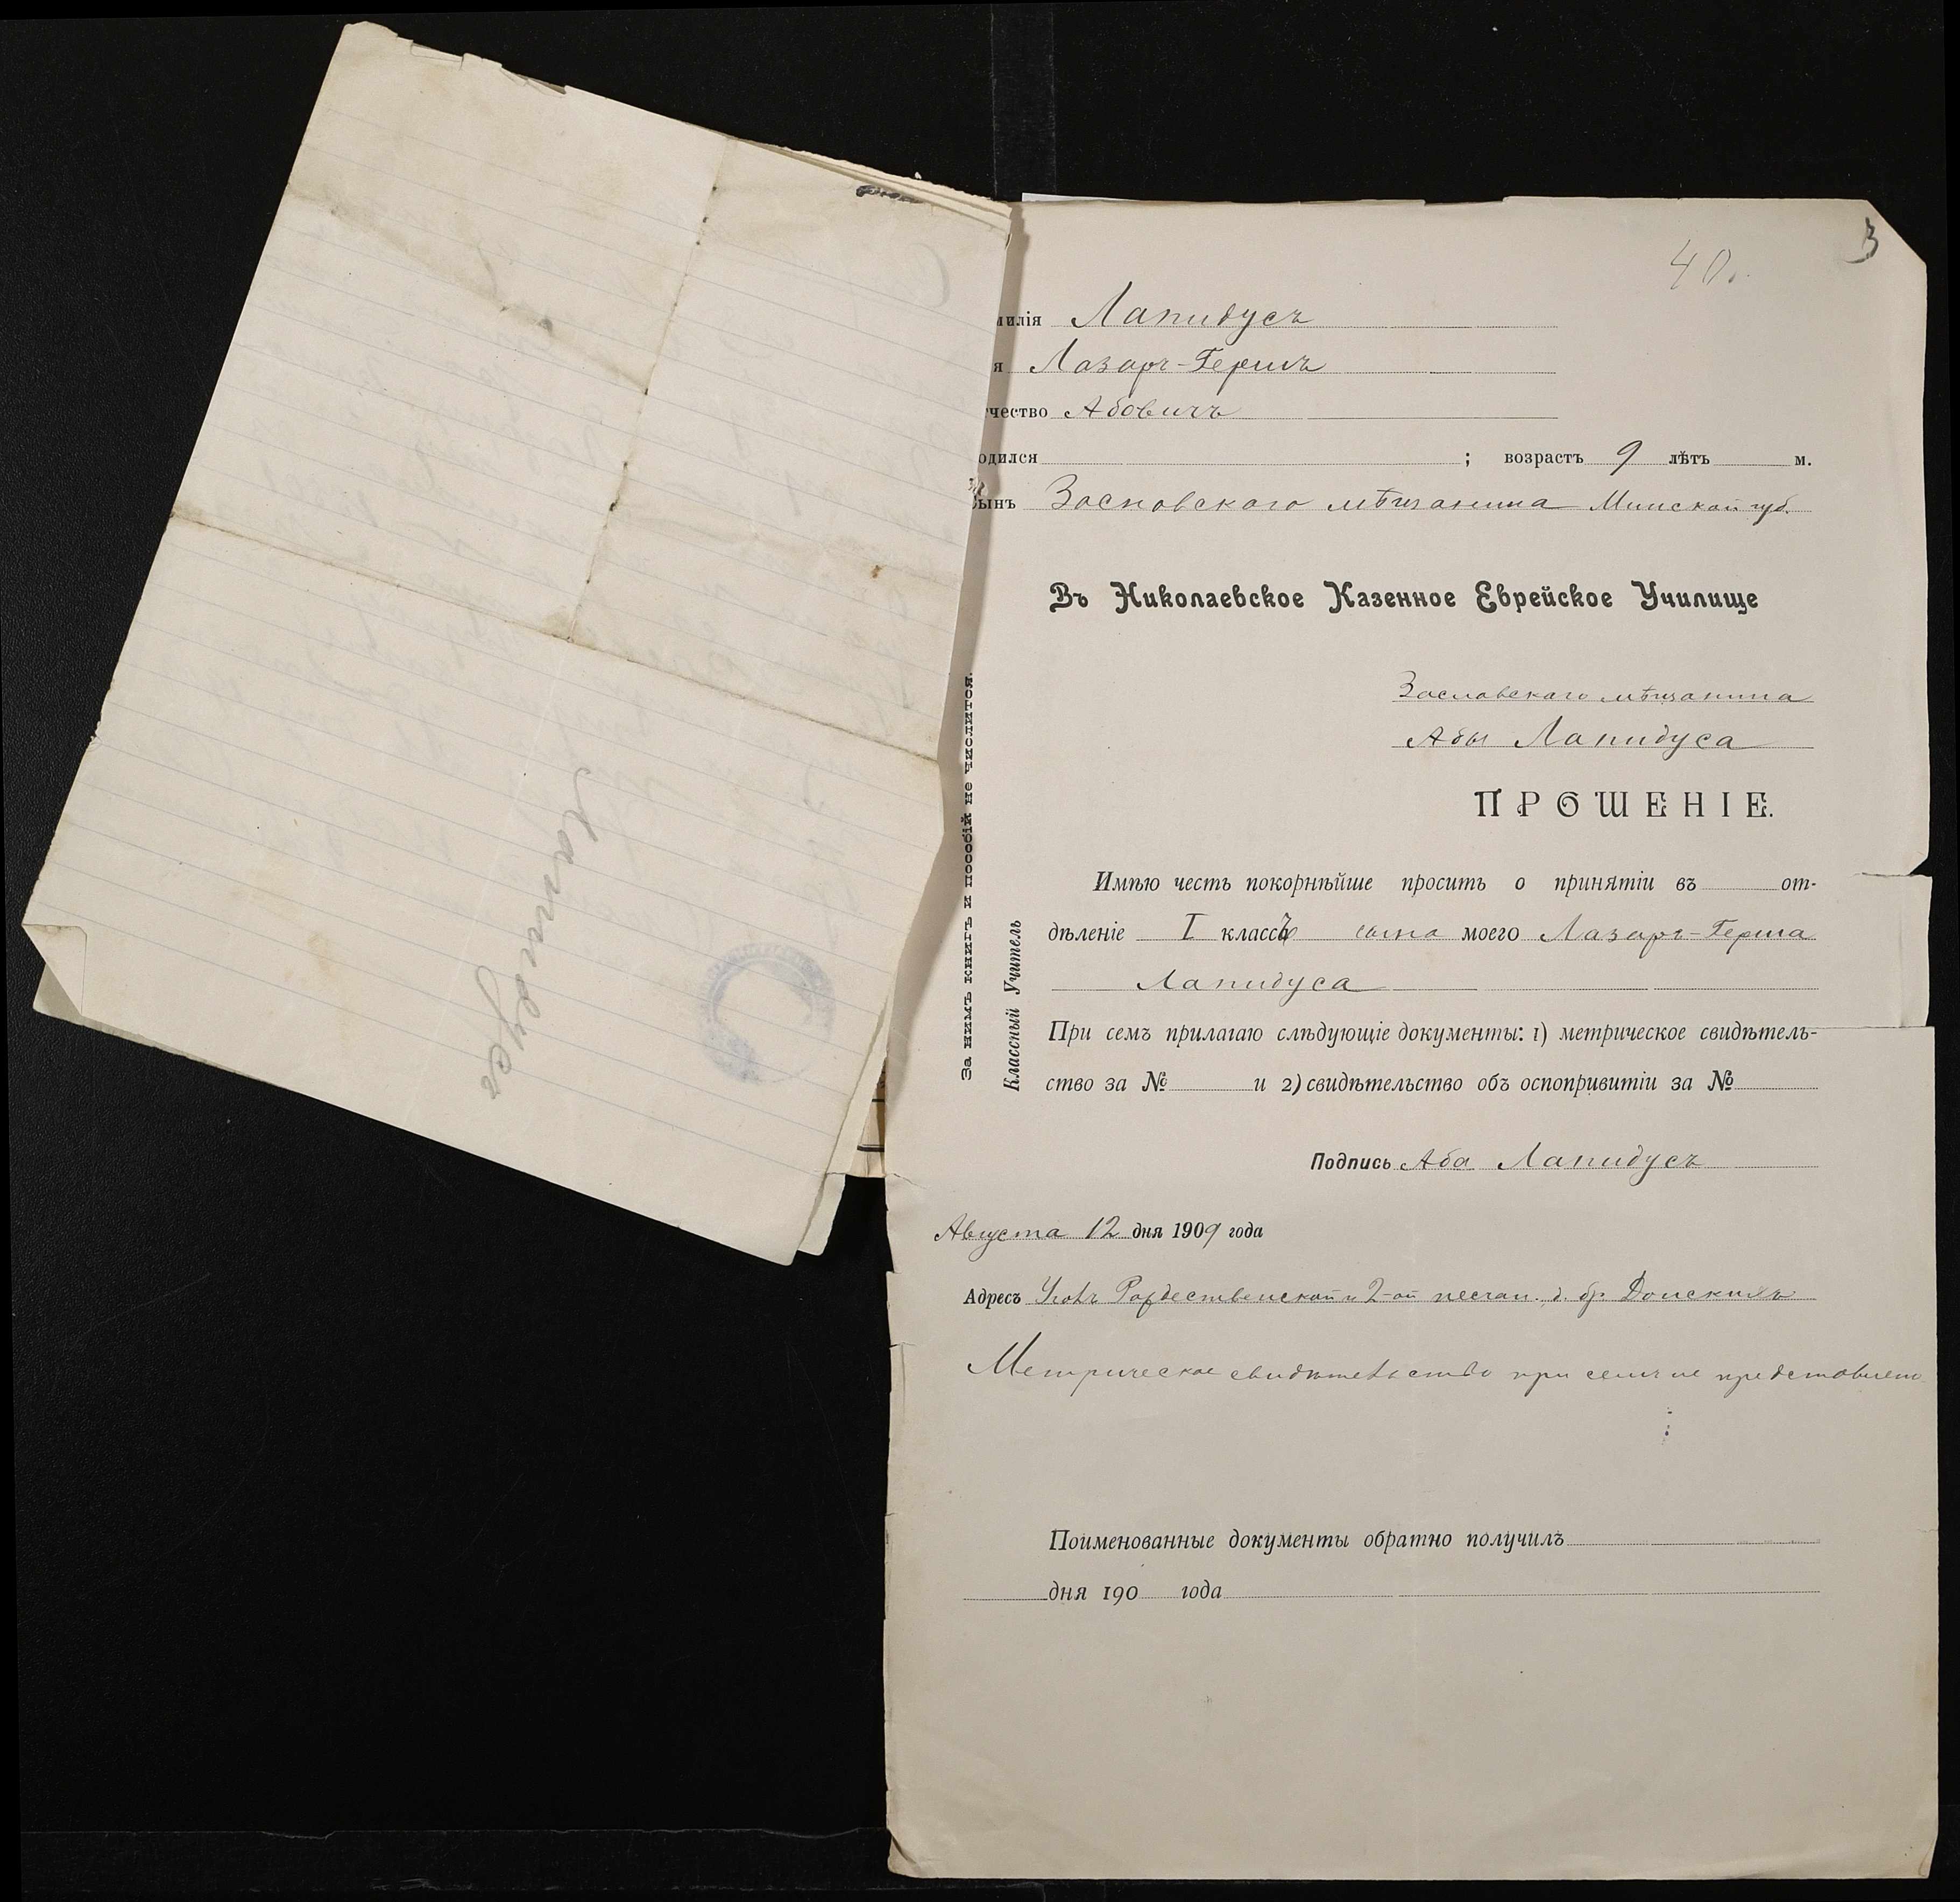 Лапидусъ
3
40.
милія Лапидусъ
я Лазарь-Гершъ
чество Абовичъ
одился ; возрастъ 9 лѣтъ м.
Сынъ Заславского мѣщанина Минской губ.
Въ Николаевское Казенное Еврейское Училище
Заславскаго мѣщанина
Абы Лапидуса
ПРОШЕНІЕ.
Имѣю честь покорнѣйше просить о принятіи въ от-
дѣленіе I классъ сына моего Лазарь-Герша
Лапидуса
При семъ прилагаю слѣдующіе документы: 1) метрическое свидѣтель-
ство за № и 2) свидѣтельство объ оспопривитіи за №
Подпись Аба Лапидусъ
Августа 12 дня 1909 года
Адресъ Уголъ Рождественской и 2-ой песчан. д. бр. Донскихъ
Метрическое свидѣтельство при семъ не представлено
Поименованные документы обратно получилъ
дня 190 года
За нимъ книгъ и пособій не числится.
Классный Учитель